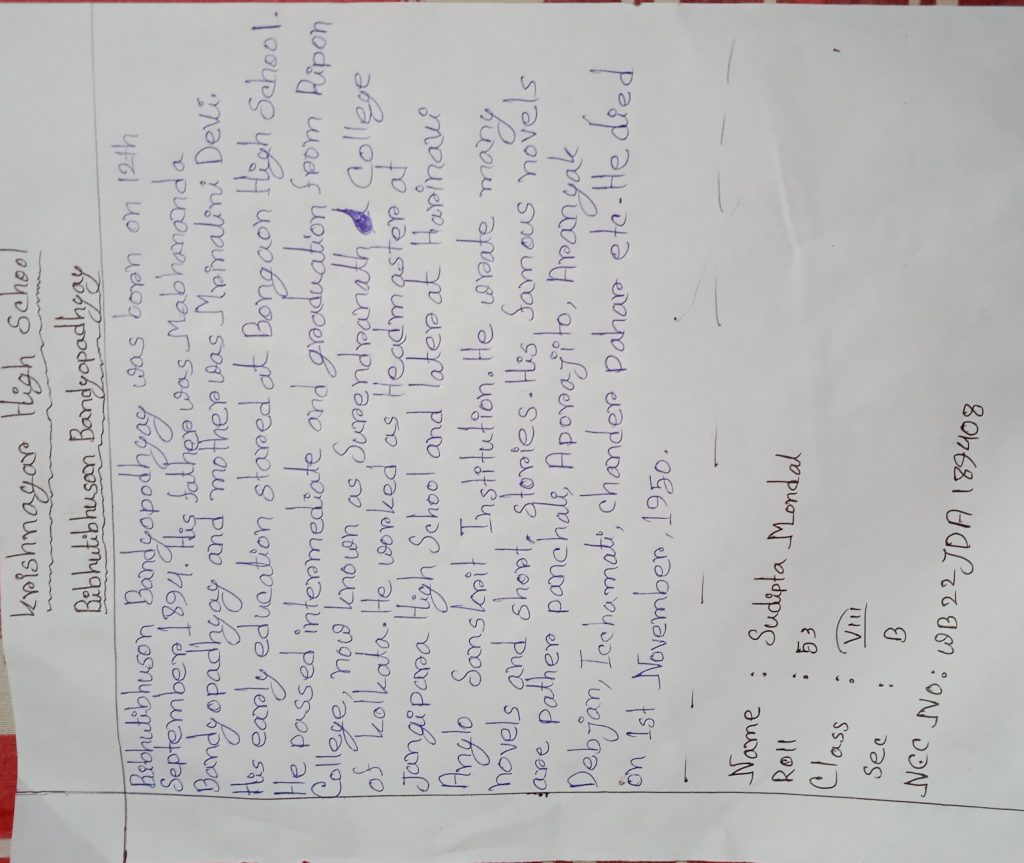 Krishnagar High School
Bibhutibhuson Bandyopadhyay
Bibhutibhuson Bandyopadhyay was born on 12th
September 1894. His father was Mabhananda
Bandyopadhyay and mother was Mrinalini Devi.
His early education stared at Bongaon High School.
He passed intermediate and graduation from Ripon
College, now known as Surendranath College
of kolkata. He worked as Headmaster at
Jangipara High School and later at Harinavi
Anglo Sanskrit Institution. He wrate many
novels and short, stories. His famous novels
are pather panchali, Aporajito, Aranyak
Debjan, Icchamati, chander pahar etc. He died
on 1st November, 1950.
Name : Sudipta Mondal
Roll : 53
Class : VIII
Sec : B
NCC NO: WB22JDA1894408